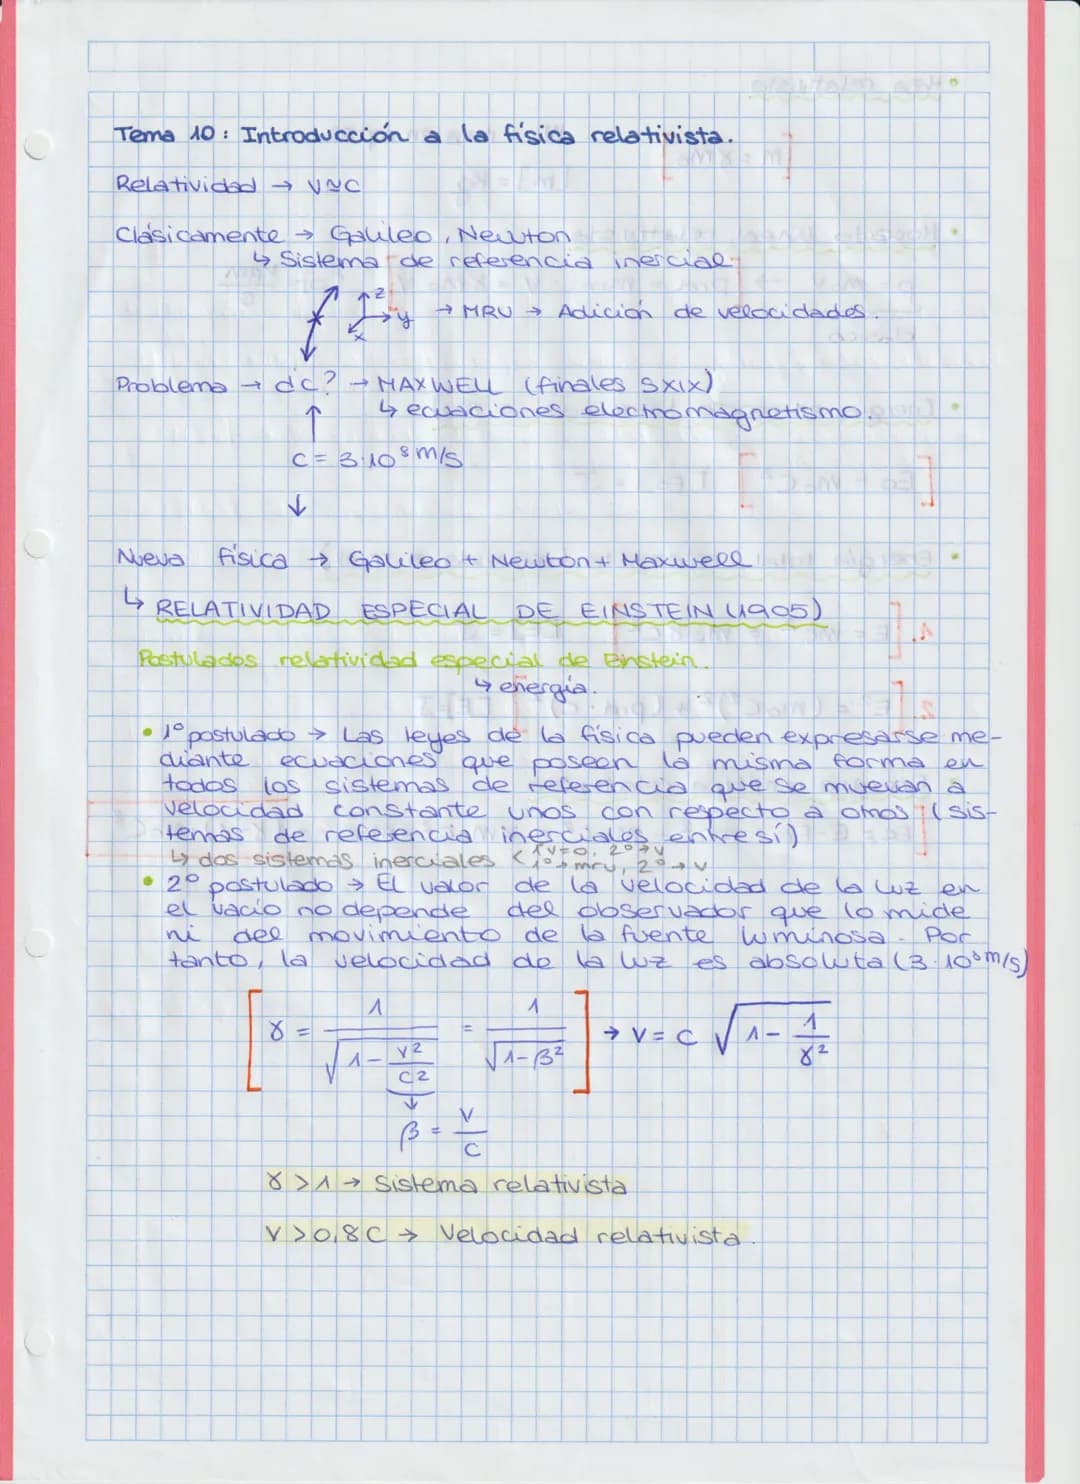 Tema 10: Introducción a la física relativista.
Relatividad → v≃c
Clásicamente → Galileo, Newton
↳ Sistema de referencia inercial
z
y
x
→ MRU → Adición de velocidades.
Problema → dc? → MAXWELL (finales SXIX)
↑ ↳ ecuaciones electromagnetismo.
c = 3·10⁸ m/s
↓
Nueva física → Galileo + Newton + Maxwell
↳ RELATIVIDAD ESPECIAL DE EINSTEIN (1905)
Postulados relatividad especial de Einstein.
↳ energía.
• 1º postulado → Las leyes de la física pueden expresarse me-
diante ecuaciones que poseen la misma forma en
todos los sistemas de referencia que se muevan a
velocidad constante unos con respecto a otros (sis-
temas de referencia inerciales entre sí)
↳ dos sistemas inerciales < 1º v=0, 2º→v
1º→mru, 2º→v
• 2º postulado → El valor de la velocidad de la luz en
el vacío no depende del observador que lo mide
ni del movimiento de la fuente luminosa. Por
tanto, la velocidad de la luz es absoluta (3·10⁸m/s)
[γ = 1/√(1 - v²/c²) = 1/√(1-β²)] → v = c √(1 - 1/γ²)
↓
β = v/c
γ > 1 → Sistema relativista
v > 0,8c → Velocidad relativista.